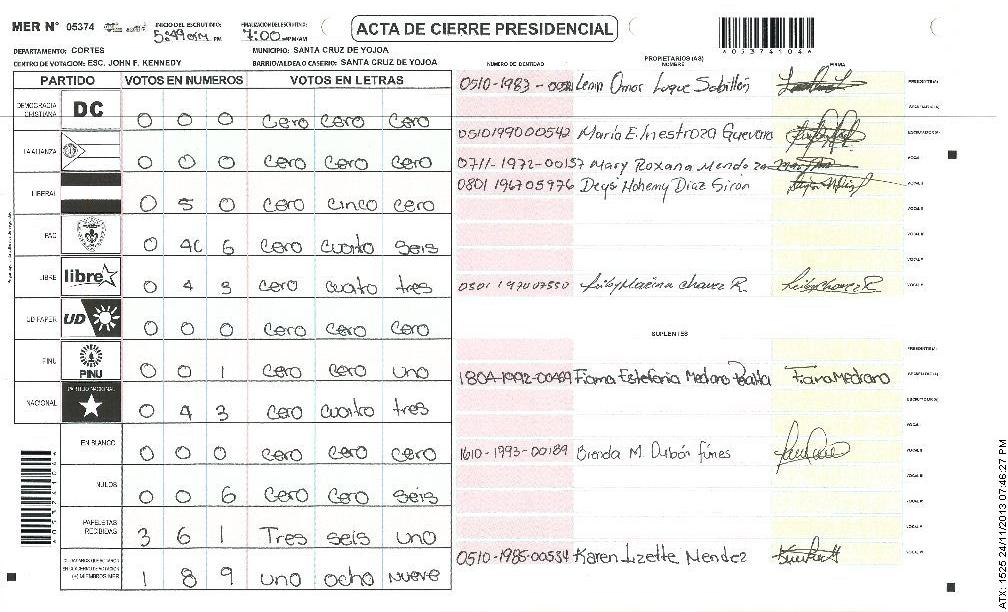 MER N° 05374 INICIO DEL ESCRUTINIO: 5:49 PM FINALIZACION DEL ESCRUTINIO: 7:00 PM/AM
ACTA DE CIERRE PRESIDENCIAL
A05374104A
DEPARTAMENTO: CORTES MUNICIPIO: SANTA CRUZ DE YOJOA
CENTRO DE VOTACION: ESC. JOHN F. KENNEDY BARRIO/ALDEA O CASERIO: SANTA CRUZ DE YOJOA
PARTIDO VOTOS EN NUMEROS VOTOS EN LETRAS
DEMOCRACIA CRISTIANA DC 0 0 0 cero cero cero
LA ALIANZA 0 0 0 cero cero cero
LIBERAL 0 5 0 cero cinco cero
PAC 0 4 6 cero cuatro seis
LIBRE libre 0 4 3 cero cuatro tres
UD FAPER UD 0 0 0 cero cero cero
PINU PINU 0 0 1 cero cero uno
NACIONAL PARTIDO NACIONAL 0 4 3 cero cuatro tres
EN BLANCO 0 0 0 cero cero cero
NULOS 0 0 6 cero cero seis
PAPELETAS RECIBIDAS 3 6 1 Tres seis uno
(+) MIEMBROS MER 1 8 9 uno ocho nueve
PROPIETARIOS (AS)
NUMERO DE IDENTIDAD NOMBRE FIRMA
Lenin Omar Luque Sabillón
0510199000542 Maria E. Inestroza Guevara
0711-1972-00157 Mary Roxana Mendoza
0801 196705976 Deysi Nohemy Diaz Giron
0501 197007550 Liliby Marina Chavez R.
SUPLENTES
1804-1992-00469 Fiama Estefania Medrano Peralta Fiama Medrano
1610-1993-00189 Brenda M.
0510-1985-00534 Karen Lizette Mendez
ATX: 1525 24/11/2013 07:46:27 PM